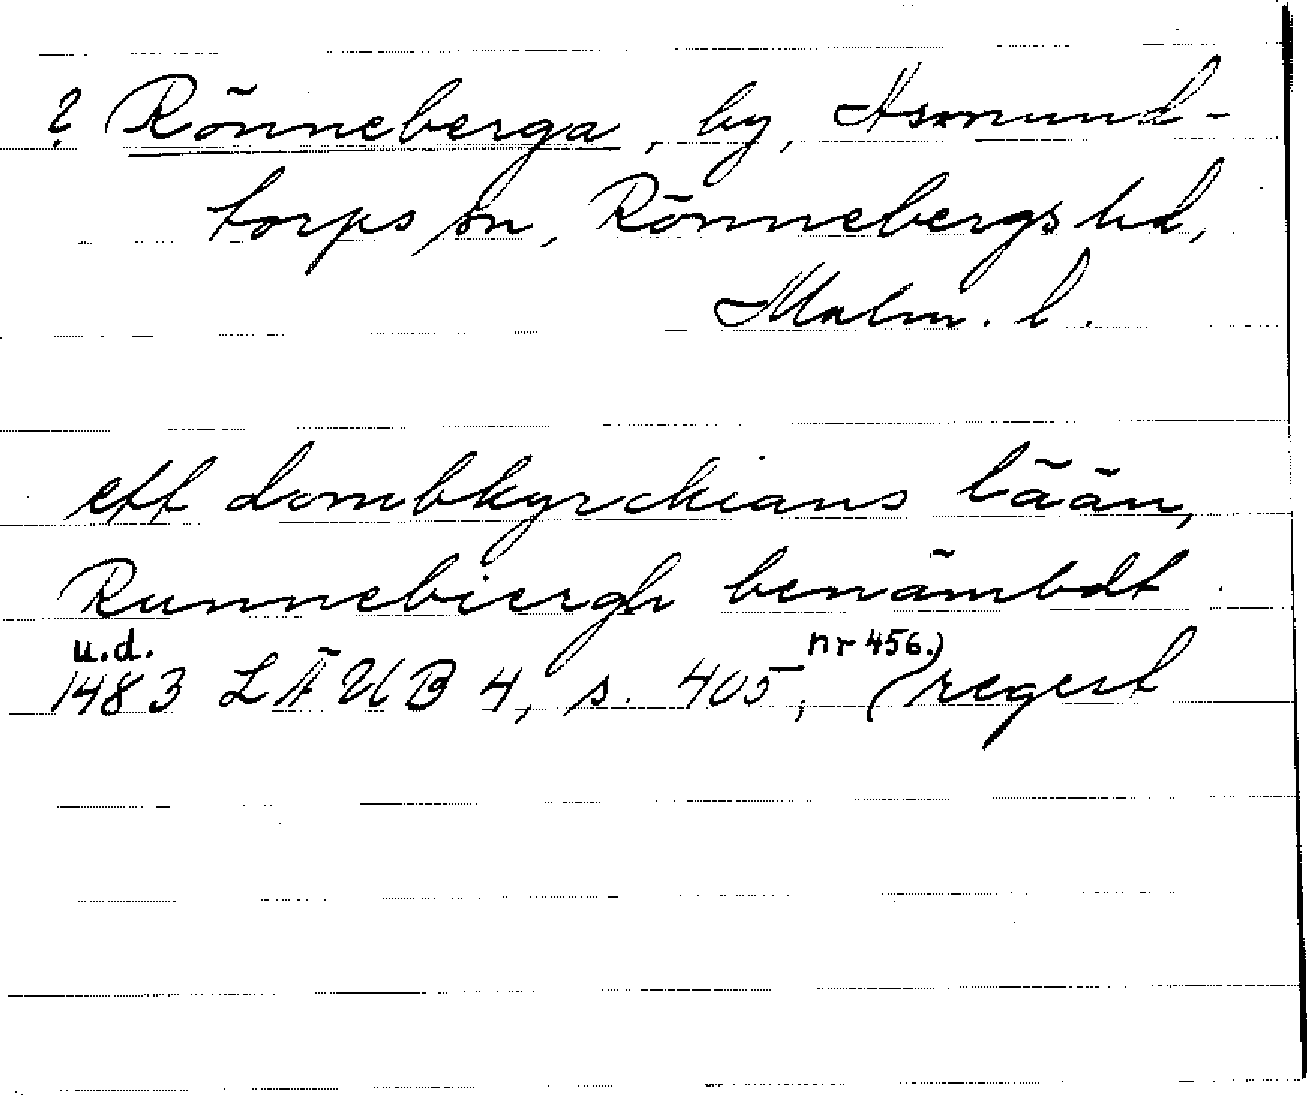 ? Rönneberga, by, Asmund-
torps sn, Rönnebergs hd,
Malm. l.
ett dombkyrckians lään,
Runnebiergh benämbdt
u.d. nr 456.)
1483 LÄUB 4, s. 405, (regest